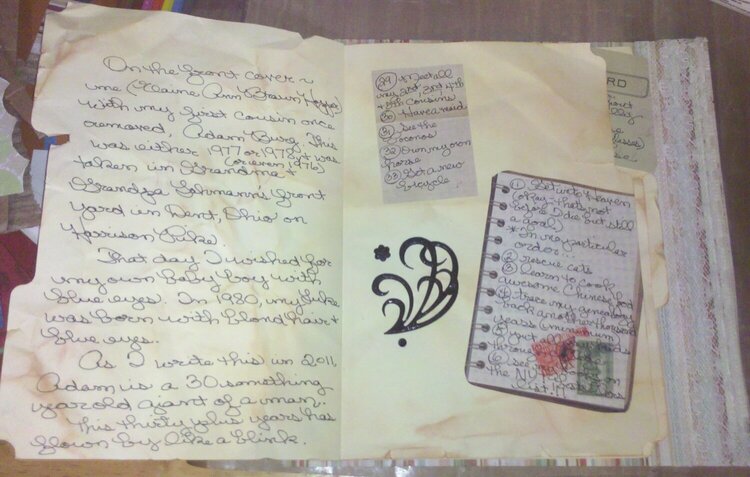 On the front cover ~
me (Elaine Ann Braun Hoyer)
with my first cousin once
removed, Adam Burg. This
was either 1977 or 1978 + was
(or even 1976)
taken in Grandma +
Grandpa Lohmann's front
yard in Dent, Ohio on
Harrison Pike.
That day I wished for
my own baby boy with
blue eyes. In 1980, my Luke
was born with blond hair +
blue eyes.
As I wrote this in 2011,
Adam is a 30 something
year old giant of a man.
This thirty plus years has
flown by like a blink.
(29) Meet all
my 2nd, 3rd, 4th
+ 5th cousins
(30) Have a maid
(31) See the
Poconos
(32) Own my own
horse
(33) Get a new
bicycle
(1) Get into Heaven
(okay - that's not
before I die but still
a goal)
* In no particular
order...
(2) rescue cats
(3) learn to cook
awesome Chinese food
(4) trace my genealogy
back another thousand
years (minimum)
(5)
(6) see
the NY
list!!
RD